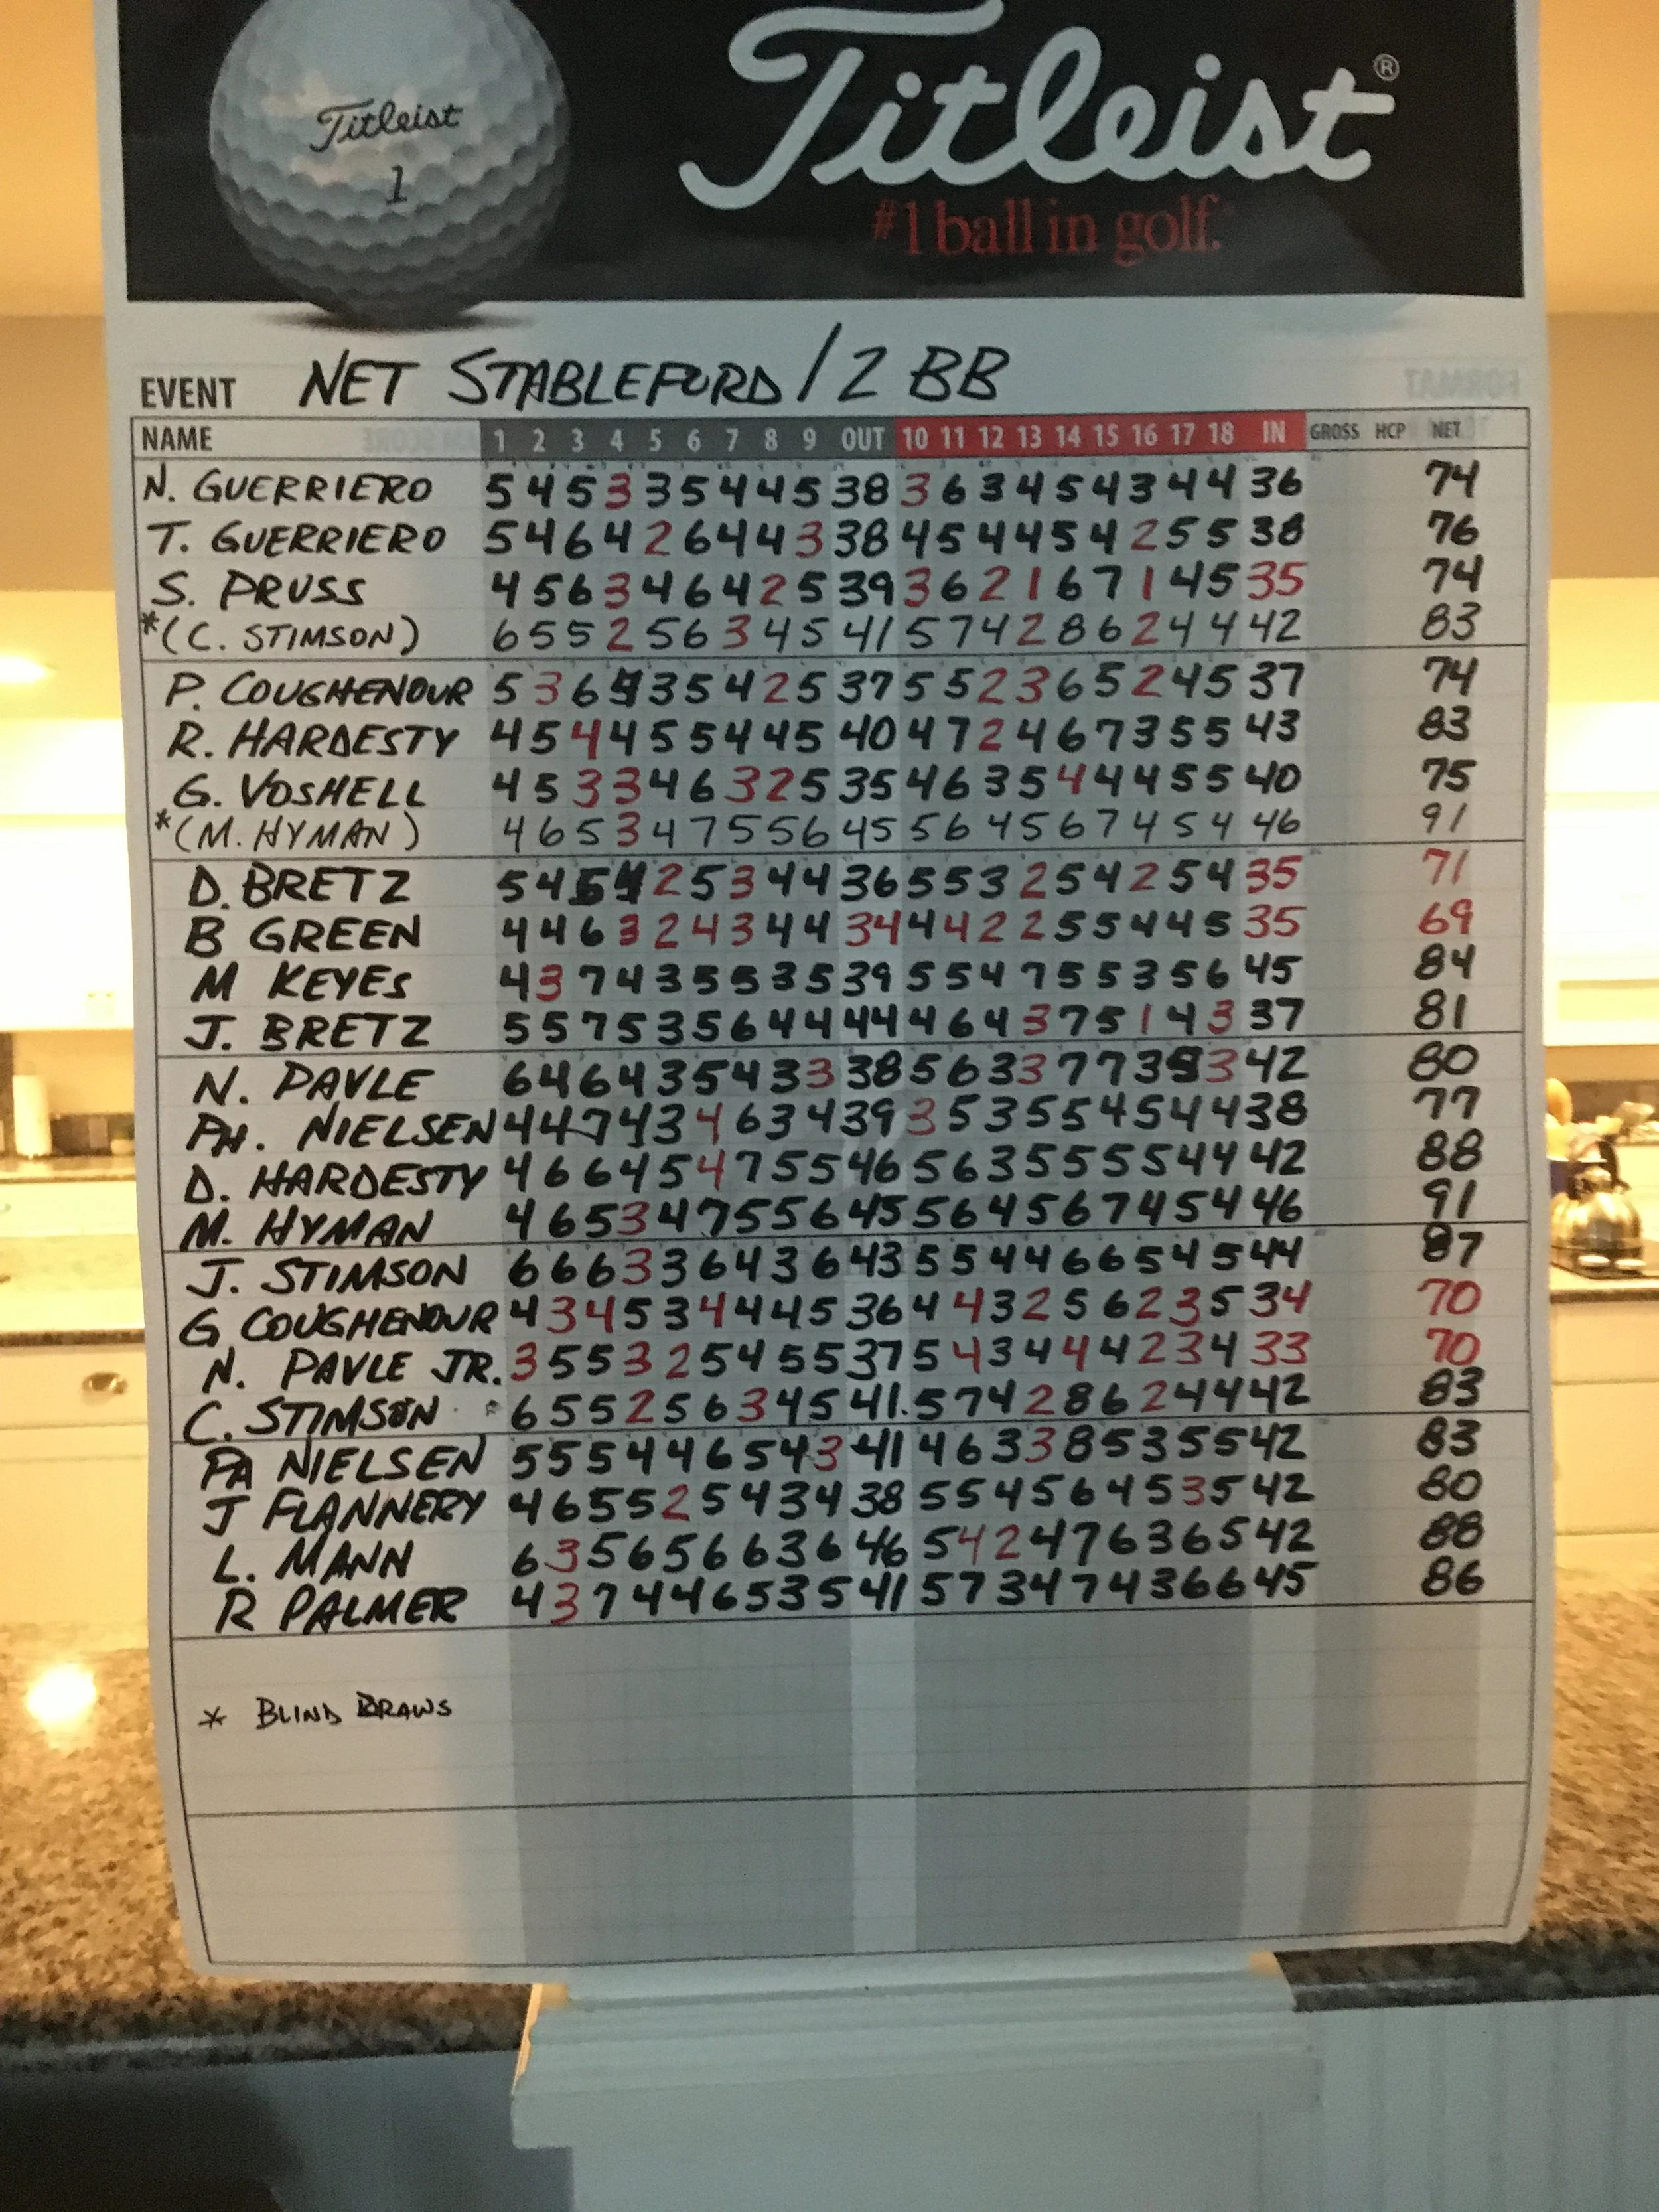 Titleist
1
Titleist®
#1 ball in golf.
EVENT NET STABLEFORD / 2 BB
NAME 1 2 3 4 5 6 7 8 9 OUT 10 11 12 13 14 15 16 17 18 IN GROSS HCP NET
N. GUERRIERO 5 4 5 3 3 5 4 4 5 38 3 6 3 4 5 4 3 4 4 36 74
T. GUERRIERO 5 4 6 4 2 6 4 4 3 38 4 5 4 4 5 4 2 5 5 38 76
S. PRUSS 4 5 6 3 4 6 4 2 5 39 3 6 2 1 6 7 1 4 5 35 74
*(C. STIMSON) 6 5 5 2 5 6 3 4 5 41 5 7 4 2 8 6 2 4 4 42 83
P. COUGHENOUR 5 3 6 4 3 5 4 2 5 37 5 5 2 3 6 5 2 4 5 37 74
R. HARDESTY 4 5 4 4 5 5 4 4 5 40 4 7 2 4 6 7 3 5 5 43 83
G. VOSHELL 4 5 3 3 4 6 3 2 5 35 4 6 3 5 4 4 4 5 5 40 75
*(M. HYMAN) 4 6 5 3 4 7 5 5 6 45 5 6 4 5 6 7 4 5 4 46 91
D. BRETZ 5 4 5 4 2 5 3 4 4 36 5 5 3 2 5 4 2 5 4 35 71
B GREEN 4 4 6 3 2 4 3 4 4 34 4 4 2 2 5 5 4 4 5 35 69
M KEYES 4 3 7 4 3 5 5 3 5 39 5 5 4 7 5 5 3 5 6 45 84
J. BRETZ 5 5 7 5 3 5 6 4 4 44 4 6 4 3 7 5 1 4 3 37 81
N. PAVLE 6 4 6 4 3 5 4 3 3 38 5 6 3 3 7 7 3 5 3 42 80
PH. NIELSEN 4 4 7 4 3 4 6 3 4 39 3 5 3 5 5 4 5 4 4 38 77
D. HARDESTY 4 6 6 4 5 4 7 5 5 46 5 6 3 5 5 5 5 4 4 42 88
M. HYMAN 4 6 5 3 4 7 5 5 6 45 5 6 4 5 6 7 4 5 4 46 91
J. STIMSON 6 6 6 3 3 6 4 3 6 43 5 5 4 4 6 6 5 4 5 44 87
G COUGHENOUR 4 3 4 5 3 4 4 4 5 36 4 4 3 2 5 6 2 3 5 34 70
N. PAVLE JR. 3 5 5 3 2 5 4 5 5 37 5 4 3 4 4 4 2 3 4 33 70
C. STIMSON 6 5 5 2 5 6 3 4 5 41 5 7 4 2 8 6 2 4 4 42 83
PA NIELSEN 5 5 5 4 4 6 5 4 3 41 4 6 3 3 8 5 3 5 5 42 83
J FLANNERY 4 6 5 5 2 5 4 3 4 38 5 5 4 5 6 4 5 3 5 42 80
L. MANN 6 3 5 6 5 6 6 3 6 46 5 4 2 4 7 6 3 6 5 42 88
R PALMER 4 3 7 4 4 6 5 3 5 41 5 7 3 4 7 4 3 6 6 45 86
* BLIND DRAWS